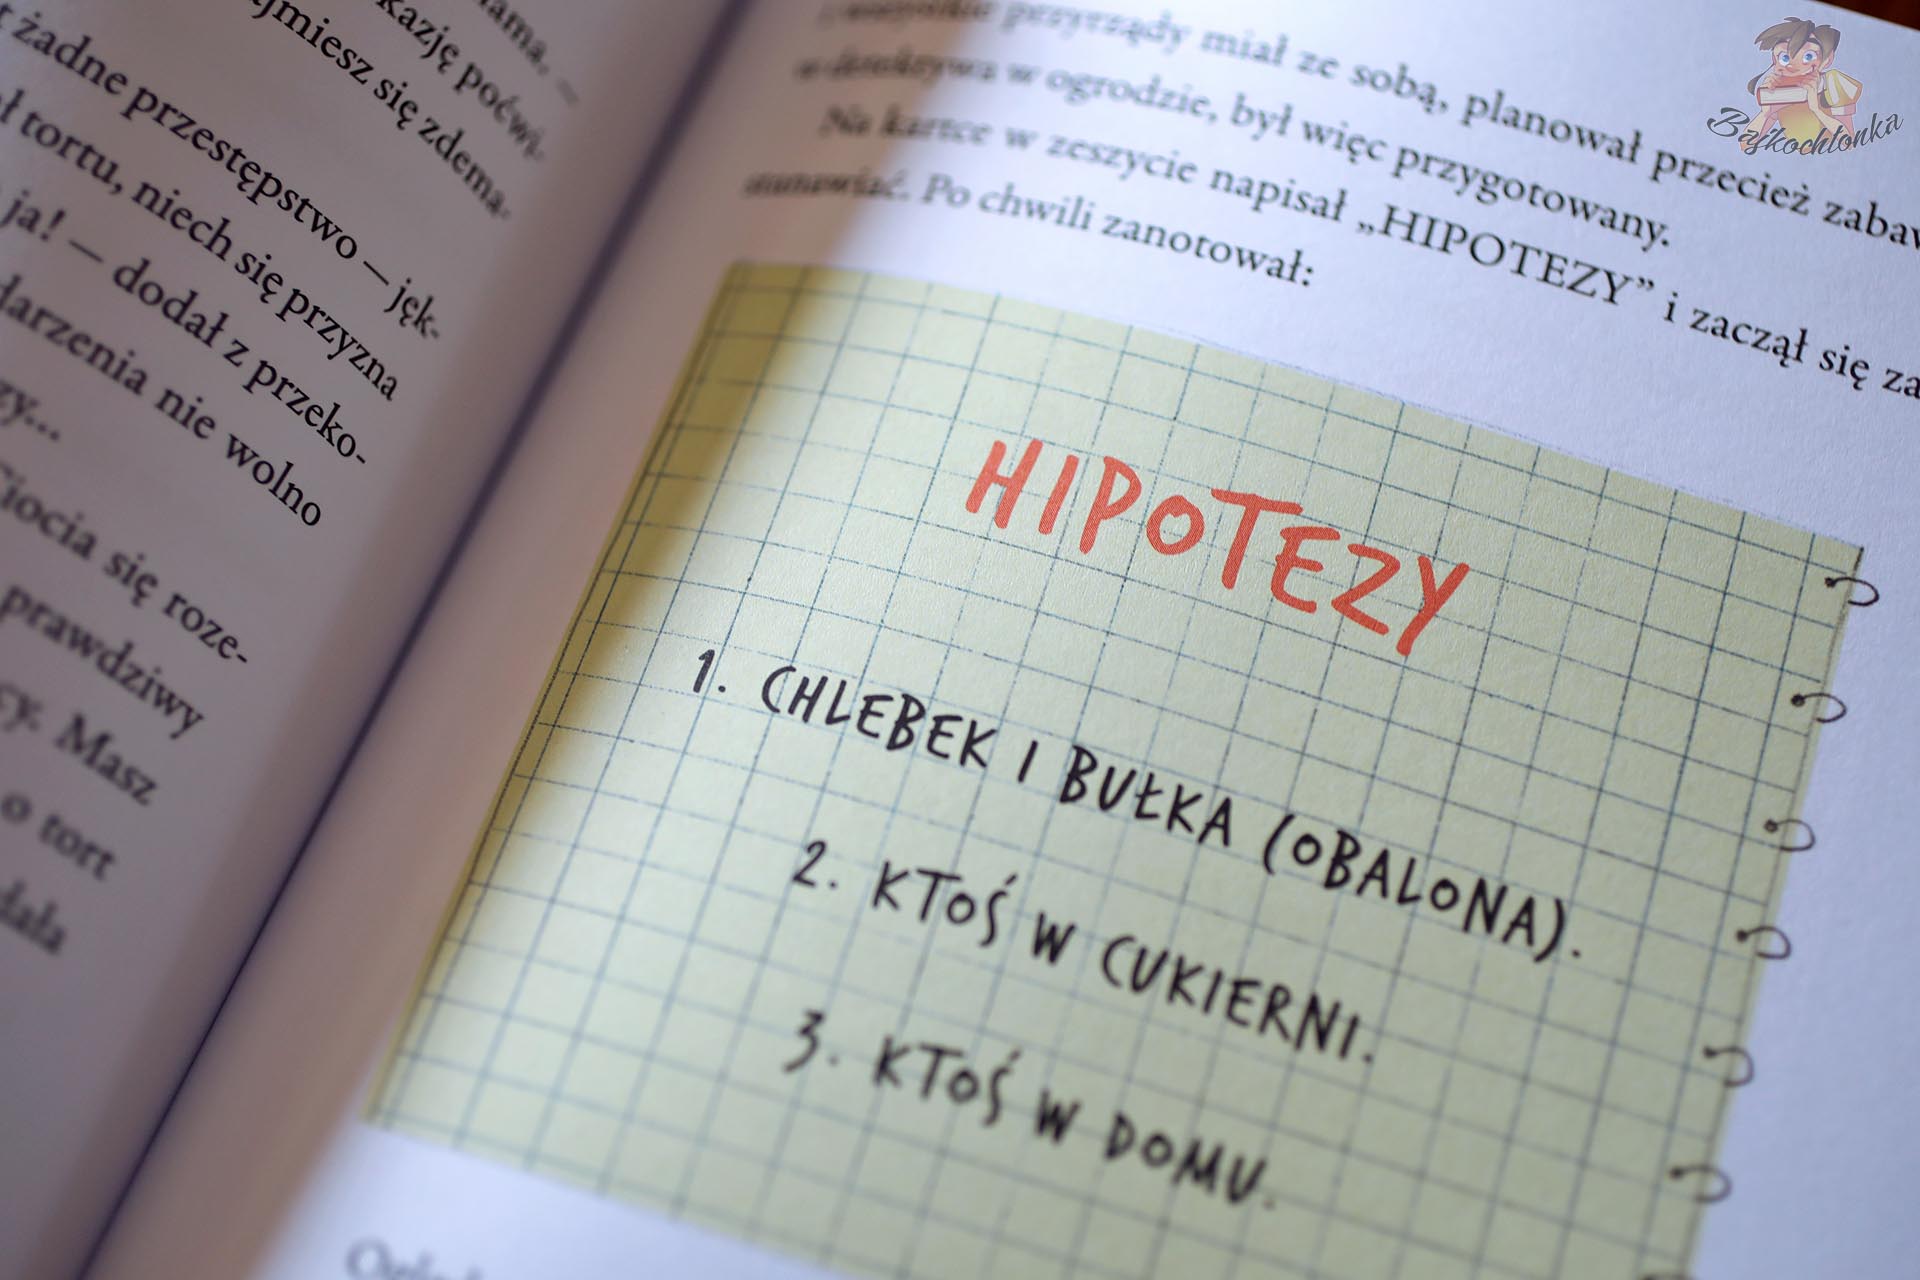 mama, –
kazję poćwi-
jmiesz się zdema-
żadne przestępstwo – jęk-
ł tortu, niech się przyzna
ja! – dodał z przeko-
darzenia nie wolno
zy...
Ciocia się roze-
prawdziwy
cy. Masz
o tort
dała
i wszystkie przyrządy miał ze sobą, planował przecież zabaw
w detektywa w ogrodzie, był więc przygotowany.
Na kartce w zeszycie napisał „HIPOTEZY” i zaczął się za
stanawiać. Po chwili zanotował:
HIPOTEZY
1. CHLEBEK I BUŁKA (OBALONA).
2. KTOŚ W CUKIERNI.
3. KTOŚ W DOMU.
Bajkochłonka